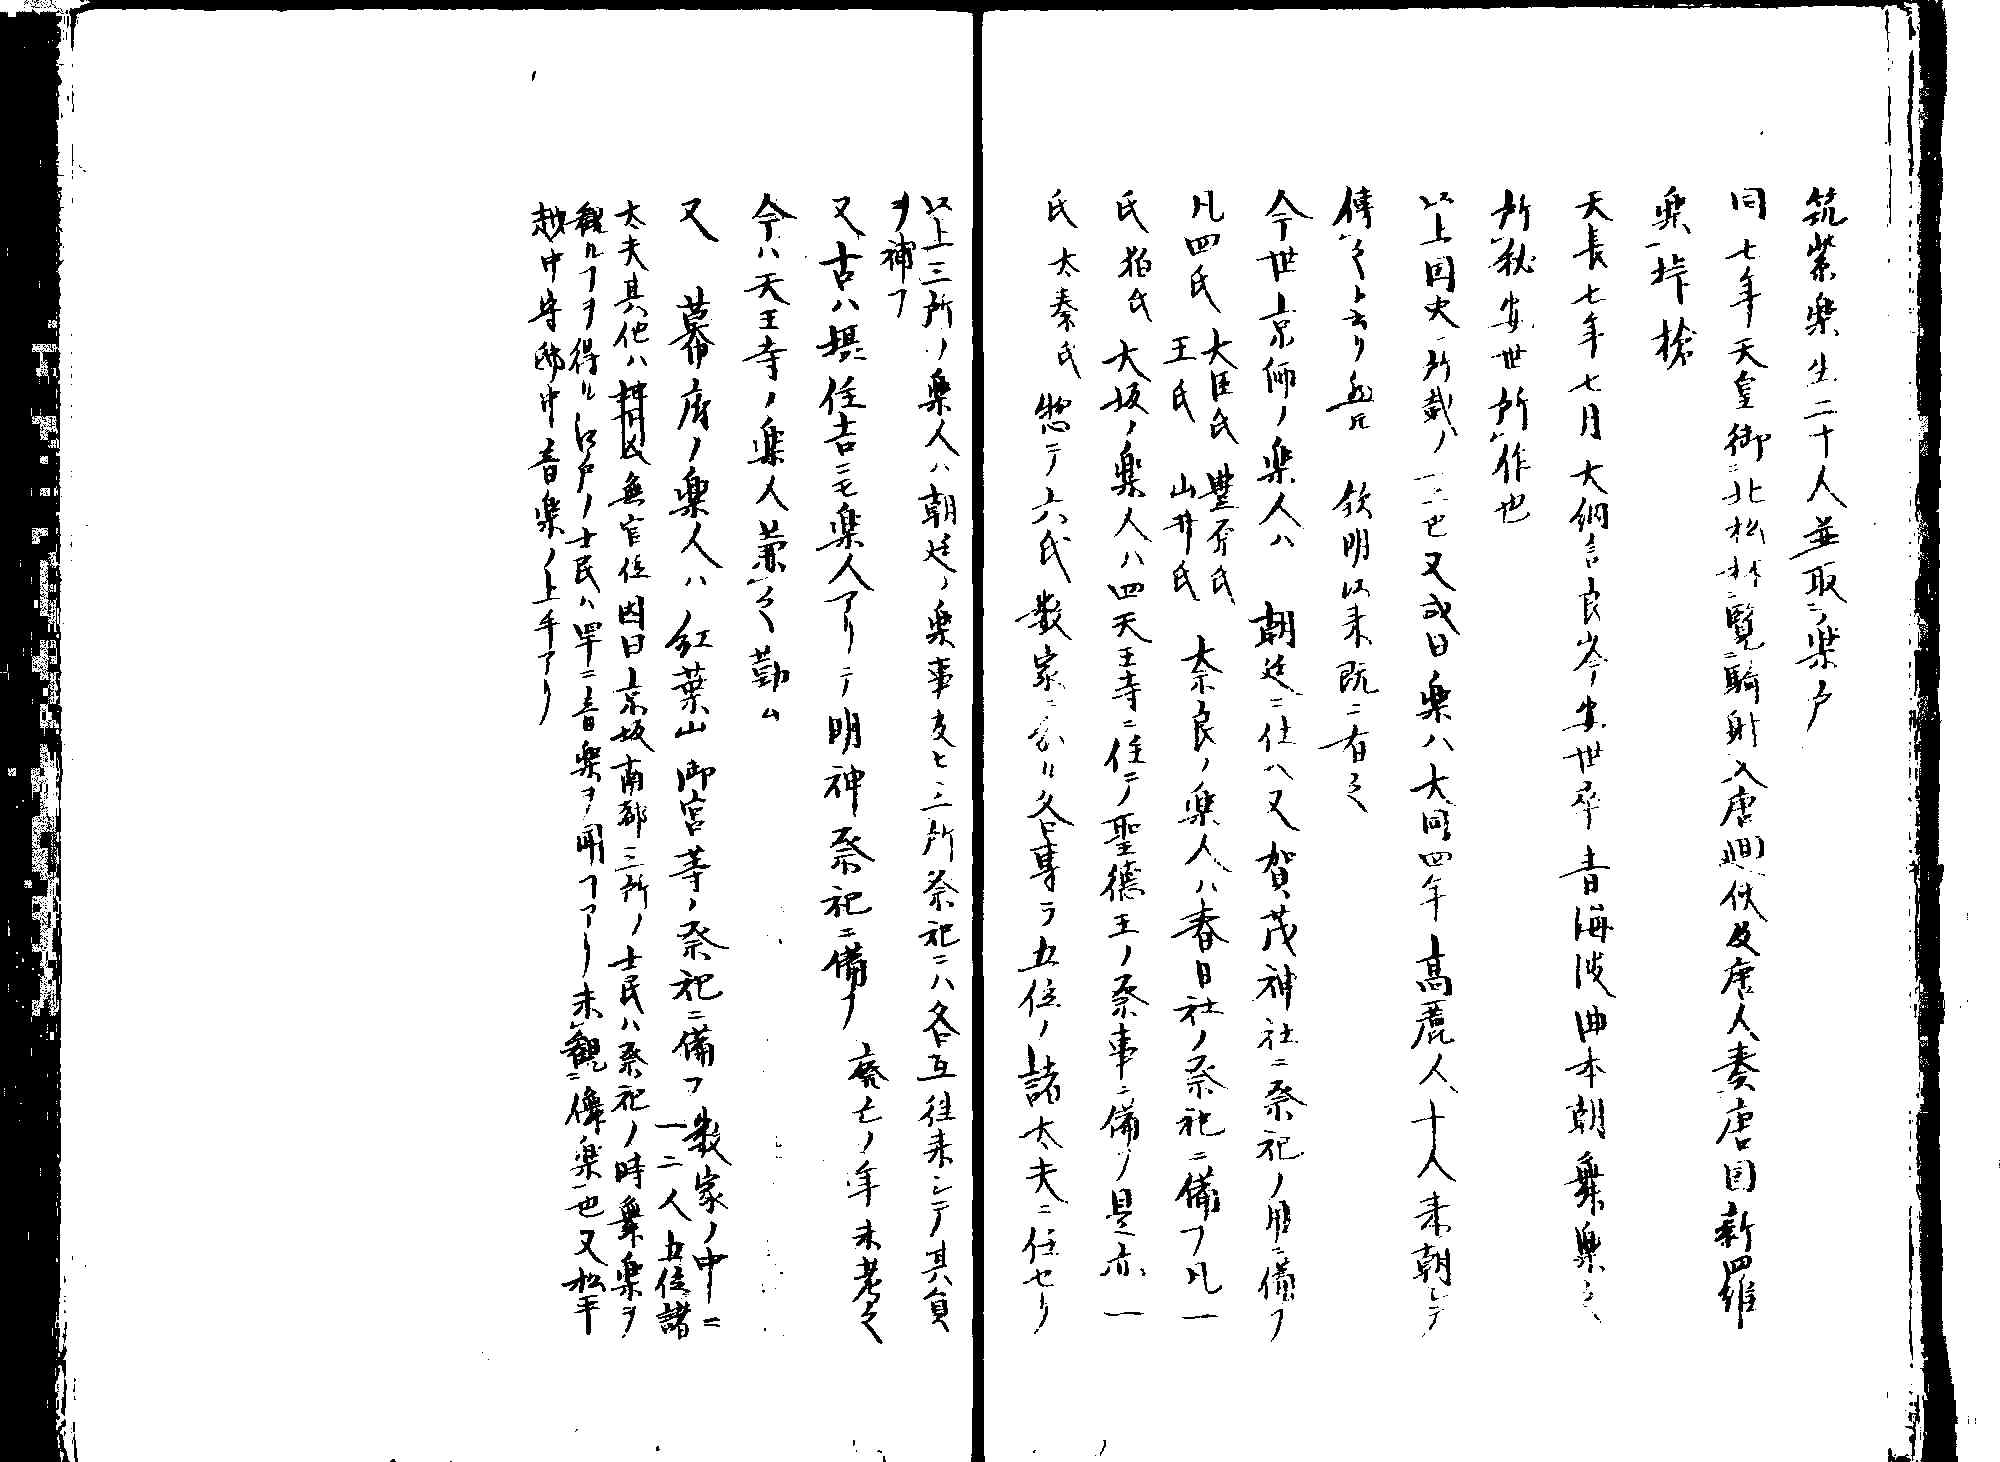 筑紫楽生二十人並取ニ楽戸
同七年天皇御ニ北松林ニ覧ニ騎射入唐廻使及唐人奏唐国新羅
楽一挊槍
天長七年七月大納言良岑ノ安世卒青海波曲本朝舞楽之
所秘安世所作也
以上国史ノ所載ノ一二也又或曰楽ハ大同四年高麗人十人来朝シテ
傳之ト云リ無 欽明以来既ニ有之
今世京師ノ楽人ハ 朝廷ニ仕ヘ又賀茂神社ニ祭祀ノ用ニ備フ
凡四氏 大臣氏 豊原氏 王氏 山井氏 奈良ノ楽人ハ春日社ノ祭祀ニ備フ凡一
氏 狛氏 大坂ノ楽人ハ四天王寺ニ住シテ聖徳王ノ祭事ニ備フ是亦一
氏 太秦氏 惣テ六氏数家ニ分ル各専ラ五位ノ諸太夫ニ任セリ
以上三所ノ楽人ハ朝廷ノ楽事及ヒ三所祭祀ニハ各互往来シテ其員
ヲ補フ
又古ハ堺住吉ニモ楽人アリテ明神祭祀ニ備フ 廃亡ノ年未考之
今ハ天王寺ノ楽人兼之勤ム
又 幕府ノ楽人ハ紅葉山御宮等ノ祭祀ニ備フ 数家ノ中ニ
一二人五位諸
太夫其他ハ無官位因曰京坂南都三所ノ士民ハ祭祀ノ時舞楽ヲ
観ルヿヲ得ル江戸ノ士民ハ罕ニ音楽ヲ聞クヿアリ未観ニ舞楽也又松平
越中守邸中音楽ノ上手アリ